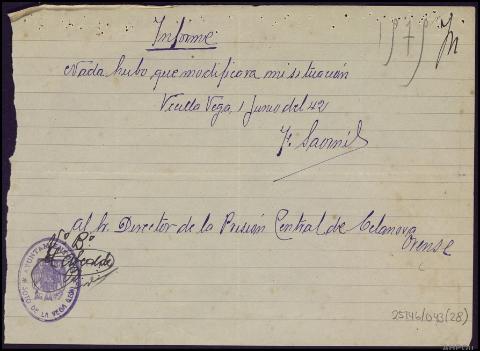 Informe
Nada hubo que modificara mi situación
Vecilla Vega, 1 Junio del 42
F. Saornil
Al Sr. Director de la Prisión Central de Celanova
Orense
Vº Bº
El Alcalde
AYUNTAMIENTO
SOTO DE LA VEGA (LEÓN)
25746/043(28)